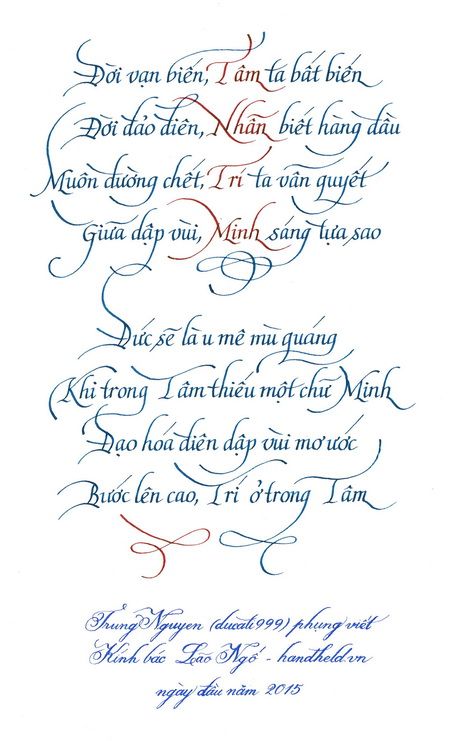 Đời vạn biến, Tâm ta bất biến
Đời đảo điên, Nhẫn biết hàng đầu
Muôn đường chết, Trí ta vẫn quyết
Giữa dập vùi, Minh sáng tựa sao
Đức sẽ là u mê mù quáng
Khi trong Tâm thiếu một chữ Minh
Đạo hóa điên dập vùi mơ ước
Bước lên cao, Trí ở trong Tâm
Trung Nguyen (ducati999) phụng viết
Kính bác Lão Ngố - handheld.vn
ngày đầu năm 2015